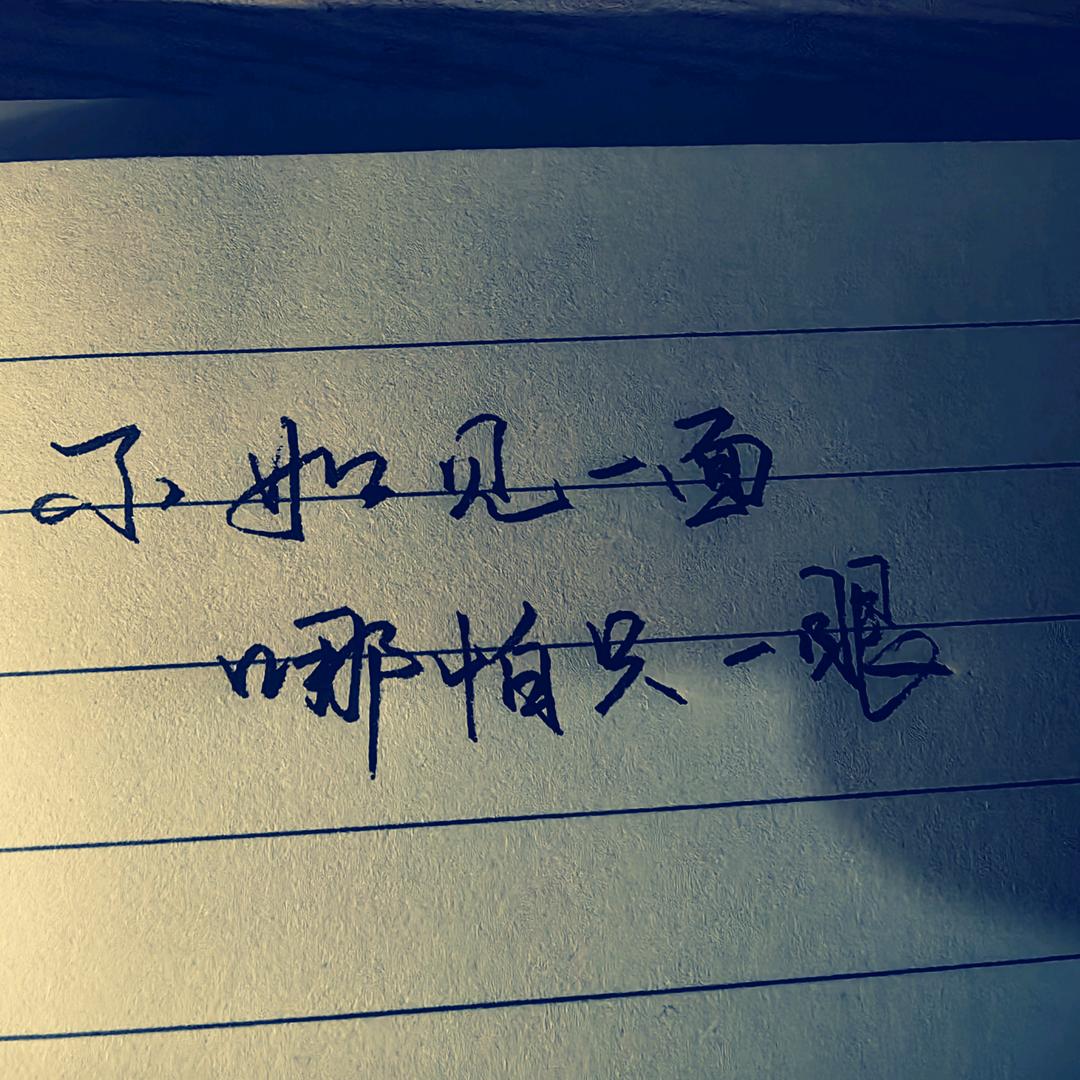 不如见一面
哪怕只一眼